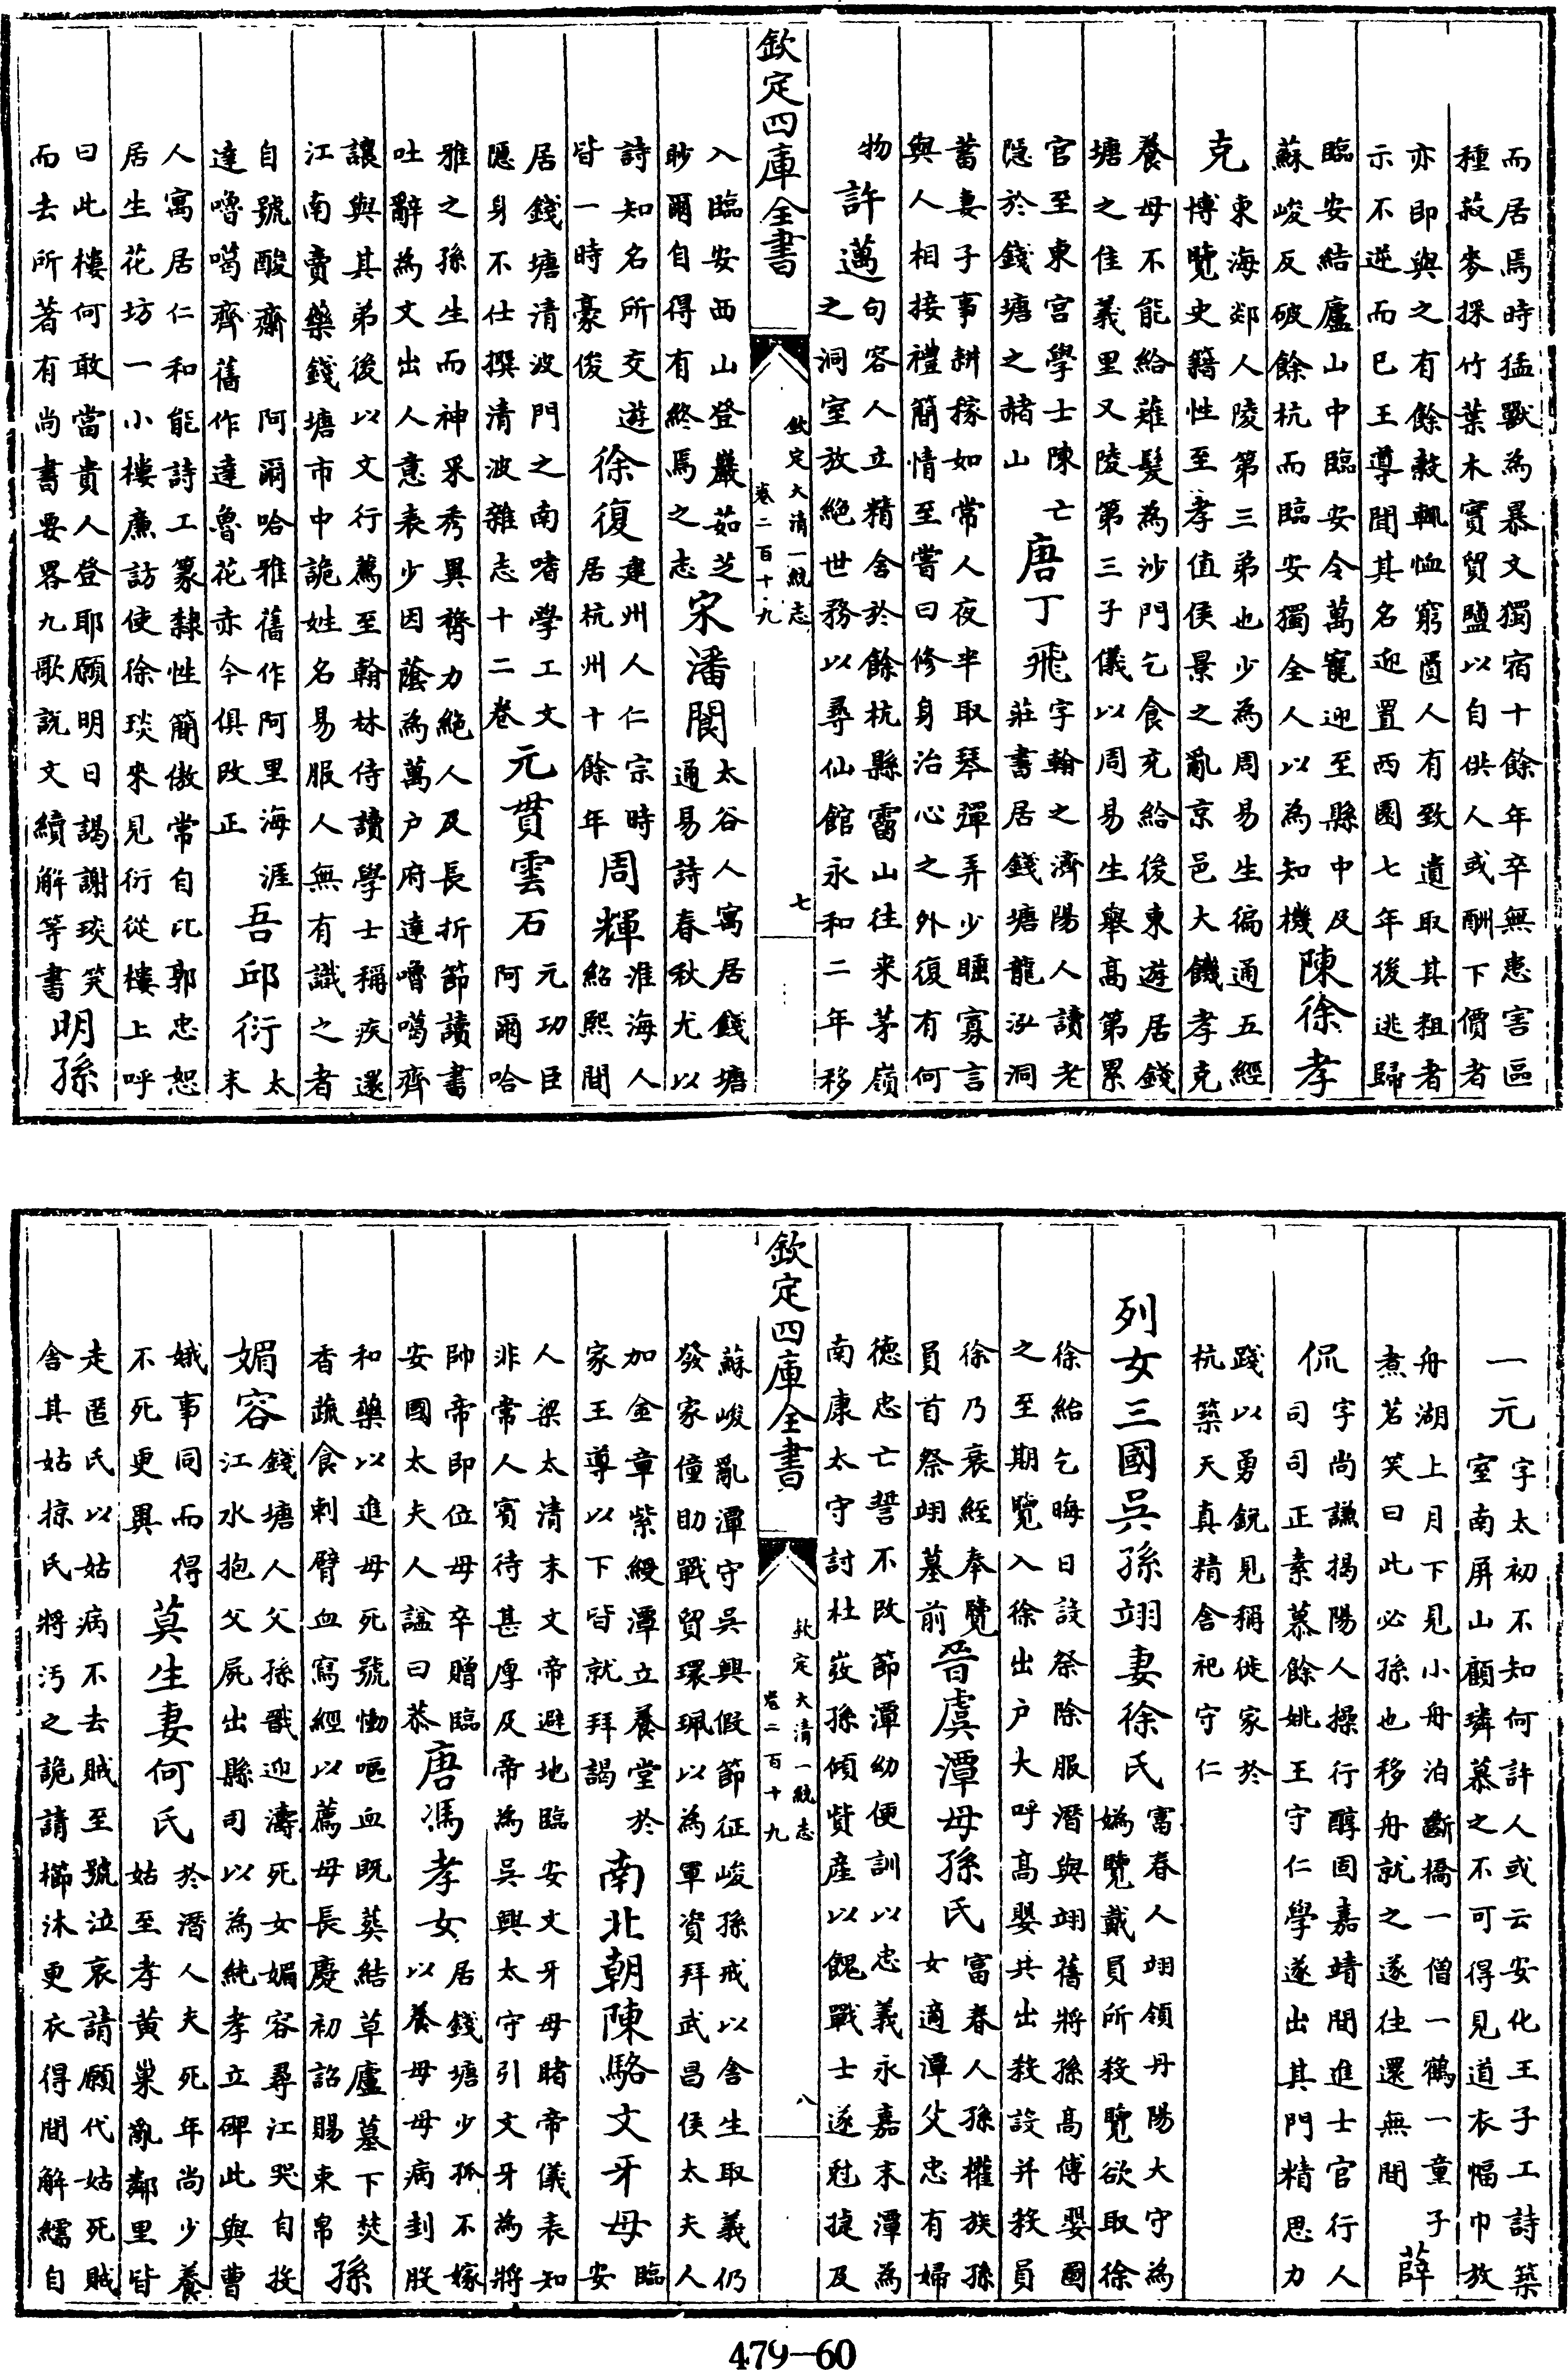 而居焉時猛獸為暴文獨宿十餘年卒無患害區
種菽麥採竹葉木實貿鹽以自供人或酬下價者
亦即與之有餘糓輒恤窮匱人有致遺取其粗者
示不逆而已王導聞其名迎置西園七年後逃歸
臨安結廬山中臨安令萬寵迎至縣中及
蘇峻反破餘杭而臨安獨全人以為知機
陳徐孝
克
東海郯人陵第三弟也少為周易生徧通五經
博覽史籍性至孝值侯景之亂京邑大饑孝克
養母不能給薙髮為沙門乞食充給後東遊居錢
塘之佳義里又陵第三子儀以周易生舉高第累
官至東宮學士陳亡
隱於錢塘之赭山
唐丁飛
字翰之濟陽人讀老
莊書居錢塘龍泓洞
蓄妻子事耕稼如常人夜半取琴彈弄少睡寡言
與人相接禮簡情至嘗曰修身治心之外復有何
物
許邁
句容人立精舍於餘杭縣霤山往來茅嶺
之洞室放絕世務以尋仙館永和二年移
欽定四庫全書
欽定大清一統志
卷二百十九
七
入臨安西山登巖茹芝
眇爾自得有終焉之志
宋潘閬
太谷人寓居錢塘
通易詩春秋尤以
詩知名所交遊
皆一時豪俊
徐復
建州人仁宗時
居杭州十餘年
周輝
淮海人
紹熙間
居錢塘清波門之南嗜學工文
隱身不仕撰清波雜志十二卷
元貫雲石
元功臣
阿爾哈
雅之孫生而神采秀異膂力絕人及長折節讀書
吐辭為文出人意表少因蔭為萬户府達嚕噶齊
讓與其弟後以文行薦至翰林侍讀學士稱疾還
江南賣藥錢塘市中詭姓名易服人無有識之者
自號酸齋 阿爾哈雅舊作阿里海涯
達嚕噶齊舊作達魯花赤今俱改正
吾邱衍
太
末
人寓居仁和能詩工篆隸性簡傲常自比郭忠恕
居生花坊一小樓廉訪使徐琰來見衍從樓上呼
曰此樓何敢當貴人登耶願明日謁謝琰笑
而去所著有尚書要畧九歌說文續解等書
明孫
一元
字太初不知何許人或云安化王子工詩築
室南屏山顧璘慕之不可得見道衣幅巾放
舟湖上月下見小舟泊斷橋一僧一鶴一童子
煮茗笑曰此必孫也移舟就之遂往還無間
薛
侃
字尚謙揭陽人操行醇固嘉靖間進士官行人
司司正素慕餘姚王守仁學遂出其門精思力
踐以勇銳見稱徙家於
杭築天真精舍祀守仁
列女三國吳孫翊妻徐氏
富春人翊領丹陽太守為
媯覽戴員所殺覽欲取徐
徐紿乞晦日設祭除服潛與翊舊將孫高傅嬰圖
之至期覽入徐出户大呼高嬰共出殺設并殺員
徐乃衰絰奉覽
員首祭翊墓前
晉虞潭母孫氏
富春人孫權族孫
女適潭父忠有婦
德忠亡誓不改節潭幼便訓以忠義永嘉末潭為
南康太守討杜弢孫傾貲產以餽戰士遂尅捷及
欽定四庫全書
欽定大清一統志
卷二百十九
八
蘇峻亂潭守吳興假節征峻孫戒以舍生取義仍
發家僮助戰貿環珮以為軍資拜武昌侯太夫人
加金章紫綬潭立養堂於
家王導以下皆就拜謁
南北朝陳駱文牙母
臨
安
人梁太清末文帝避地臨安文牙母睹帝儀表知
非常人賓待甚厚及帝為吳興太守引文牙為將
帥帝即位母卒贈臨
安國太夫人諡曰恭
唐馮孝女
居錢塘少孤不嫁
以養母母病刲股
和藥以進母死號慟嘔血既葬結草廬墓下焚
香蔬食刺臂血寫經以薦母長慶初詔賜束帛
孫
媚容
錢塘人父孫戬迎濤死女媚容尋江哭自投
江水抱父屍出縣司以為純孝立碑此與曹
娥事同而得
不死更異
莫生妻何氏
於潛人夫死年尚少養
姑至孝黃巢亂鄰里皆
走匿氏以姑病不去賊至號泣哀請願代姑死賊
舍其姑掠氏將污之詭請櫛沐更衣得間解繻自
479—60